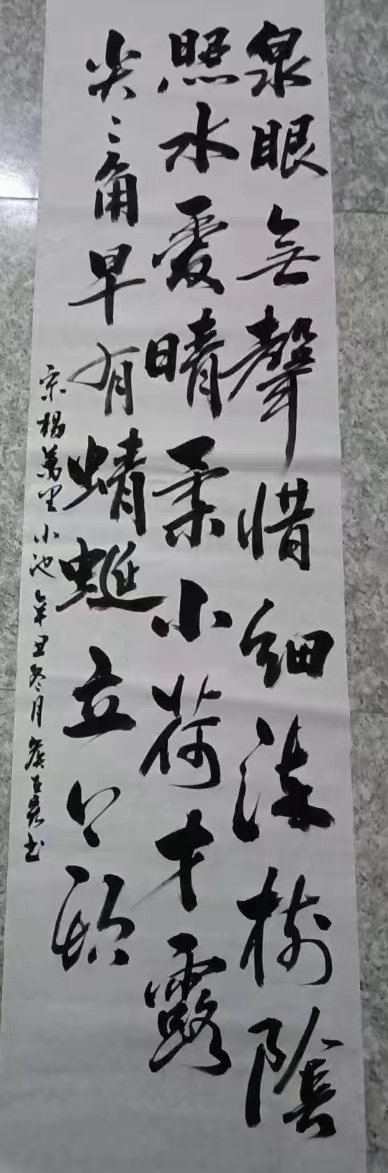 泉眼無聲惜細流樹陰
照水愛晴柔小荷才露
尖々角早有蜻蜓立上頭
宋楊萬里小池辛丑冬月書